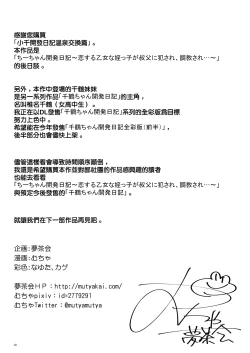 感謝您購買
「小千開發日記溫泉交換篇」。
本作品是
「ちーちゃん開発日記～恋する乙女な姪っ子が叔父に犯され、調教され…～」
的後日談。
另外，本作中登場的千鶴妹妹
是另一系列作品「千鶴ちゃん開発日記」的主角，
名叫椎名千鶴（女高中生）。
我正在以DL發售「千鶴ちゃん開発日記」系列的全彩版為目標
努力上色中。
希望能在今年發售「千鶴ちゃん開発日記全彩版（前半）」，
後半部分也會盡快上架。
儘管這樣看會導致時間順序顛倒，
我還是希望購買本作並對那社團的作品感興趣的讀者
也能去看看
「ちーちゃん開発日記～恋する乙女な姪っ子が叔父に犯され、調教され…～」
與預定今後發售的「千鶴ちゃん開発日記」。
就讓我們在下一部作品再見吧。
企画:夢茶会
漫画:むちゃ
彩色:なゆた、カゲ
夢茶会HP:http://mutyakai.com/
むちゃpixiv:id=2779291
むちゃTwitter:@mutyamutya
むちゃ
夢茶会